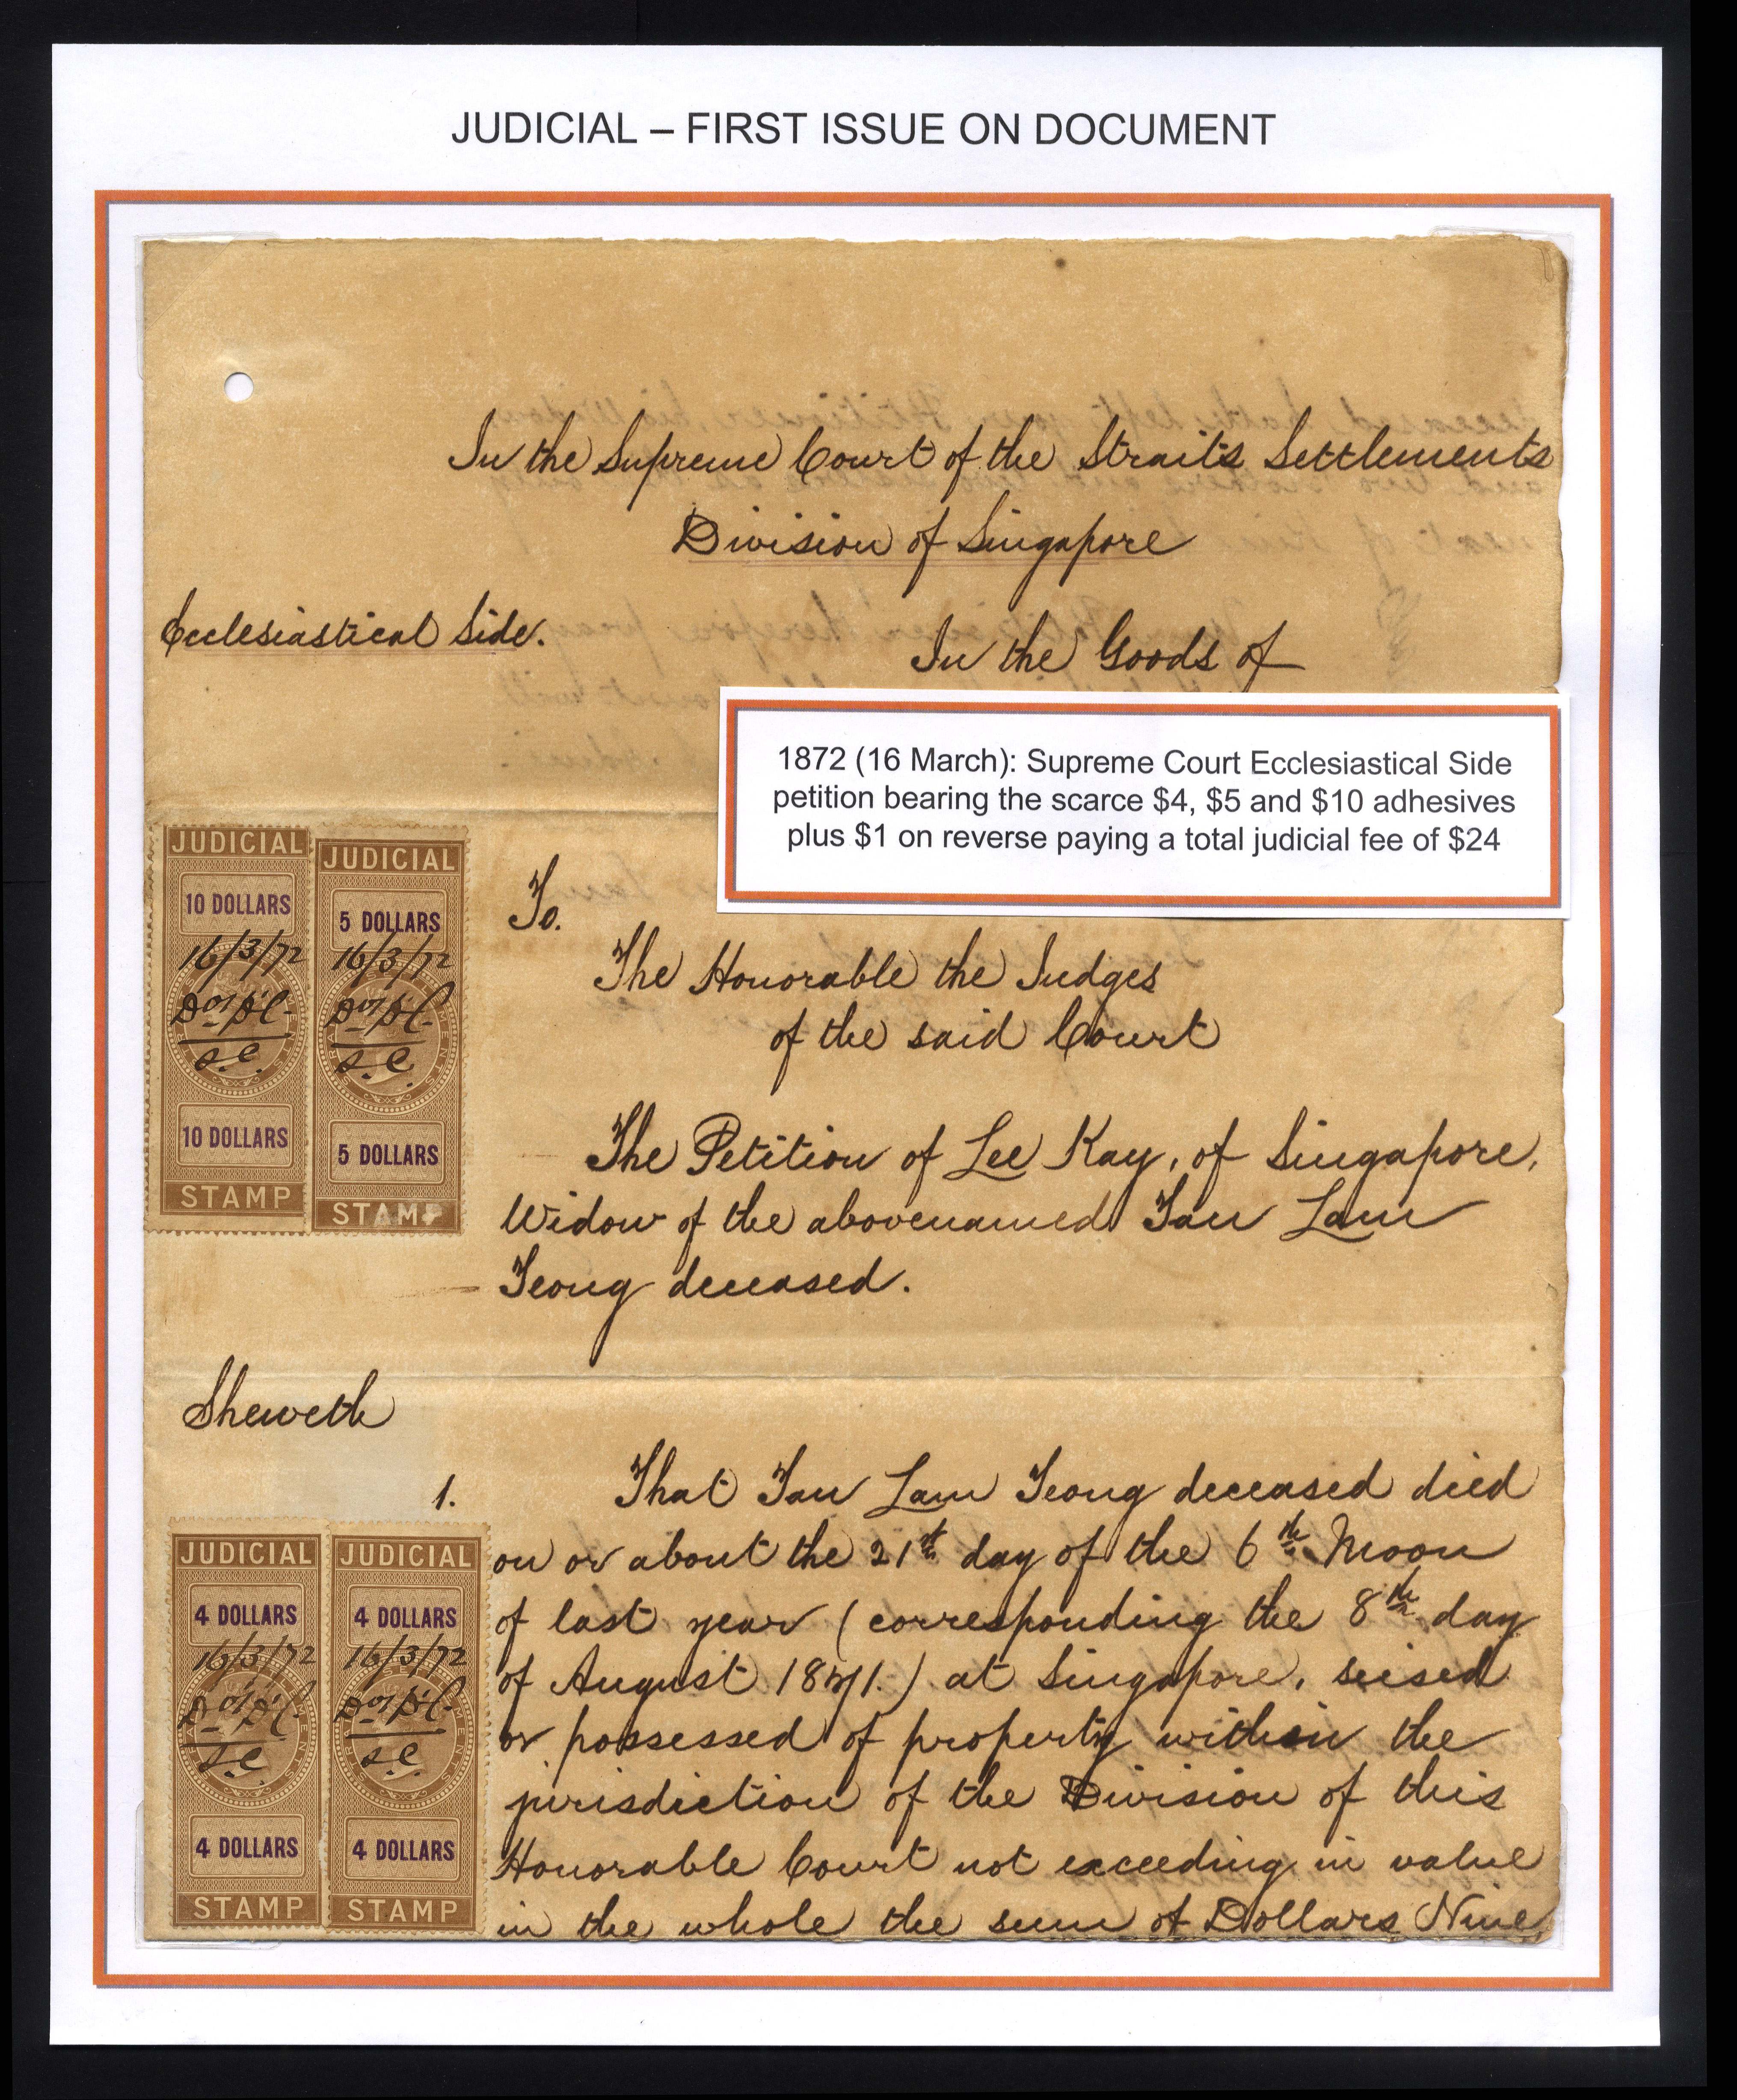 JUDICIAL – FIRST ISSUE ON DOCUMENT
In the Supreme Court of the Straits Settlements
Division of Singapore
Ecclesiastical Side.
In the Goods of
1872 (16 March): Supreme Court Ecclesiastical Side
petition bearing the scarce $4, $5 and $10 adhesives
plus $1 on reverse paying a total judicial fee of $24
JUDICIAL
10 DOLLARS
16/3/72
S.C.
10 DOLLARS
STAMP
JUDICIAL
5 DOLLARS
16/3/72
S.C.
5 DOLLARS
STAMP
To.
The Honorable the Judges
of the said Court
The Petition of Lee Kay, of Singapore,
Widow of the abovenamed Tan Lam
Teong deceased.
Sheweth
1. That Tan Lam Teong deceased died
on or about the 21st day of the 6th Moon
of last year (corresponding the 8th day
of August 1871.) at Singapore, seised
or possessed of property within the
jurisdiction of the Division of this
Honorable Court not exceeding in value
in the whole the sum of Dollars Nine
JUDICIAL
4 DOLLARS
16/3/72
S.C.
4 DOLLARS
STAMP
JUDICIAL
4 DOLLARS
16/3/72
S.C.
4 DOLLARS
STAMP